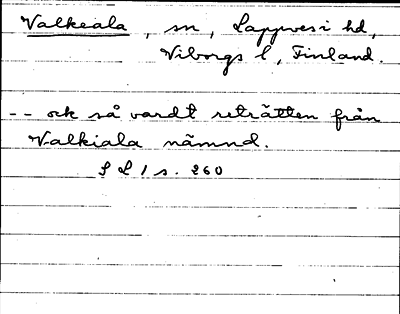 Valkeala, sn, Lappvesi hd,
Viborgs l, Finland.
-- ock så vardt reträtten från
Valkiala nämnd.
S L 1 s. 260